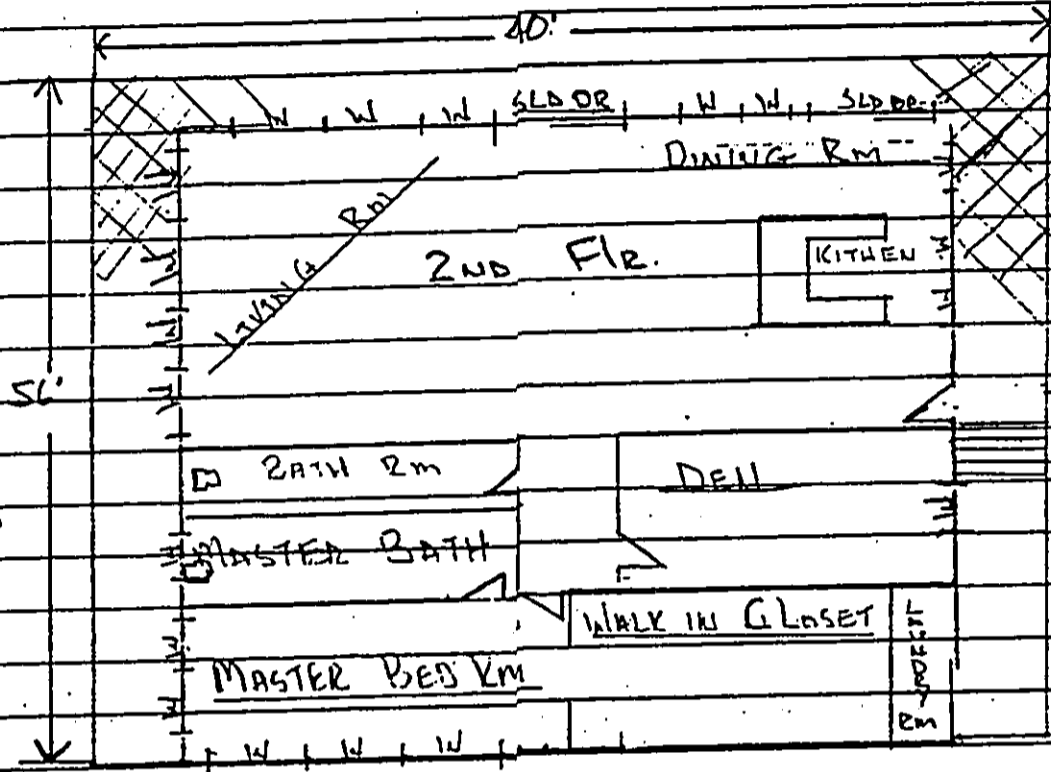 40'
W W W SLD DR W W SLD DR
DINING RM
W
W
LIVING RM
2ND FLR.
KITHEN
W
W
W
W
W
56'
BATH RM
DEN
W
W
MASTER BATH
WALK IN CLOSET
LAUNDRY RM
W
MASTER BED RM
W
W W W